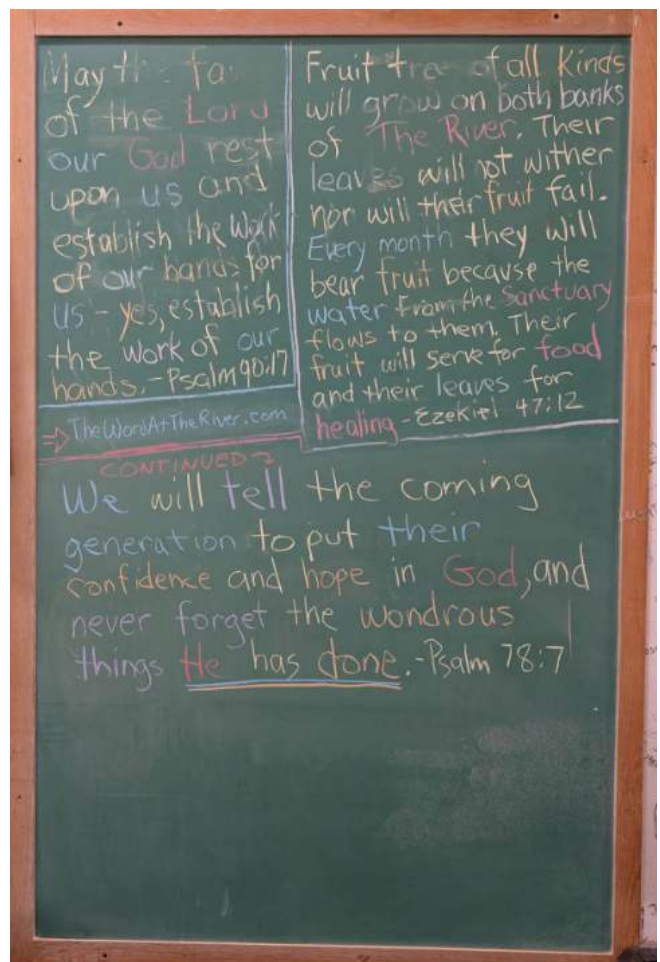 May the fa
of the Lord
our God rest
upon us and
establish the Work
of our hands for
us - yes, establish
the work of our
hands. - Psalm 90:17
⇒ TheWordAtTheRiver.com
Fruit tree of all kinds
will grow on both banks
of The River. Their
leaves will not wither
nor will their fruit fail.
Every month they will
bear fruit because the
water from the Sanctuary
flows to them. Their
fruit will serve for food
and their leaves for
healing - Ezekiel 47:12
CONTINUED
We will tell the coming
generation to put their
confidence and hope in God, and
never forget the wondrous
things He has done. - Psalm 78:7